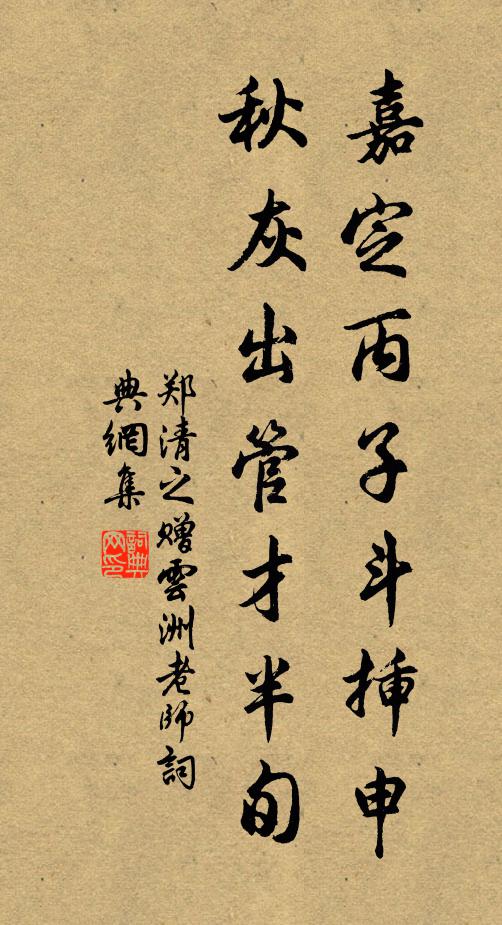 嘉定丙子斗插申
秋灰出管才半旬
郑清之赠雲洲老師詞
典網集
詞典
网印